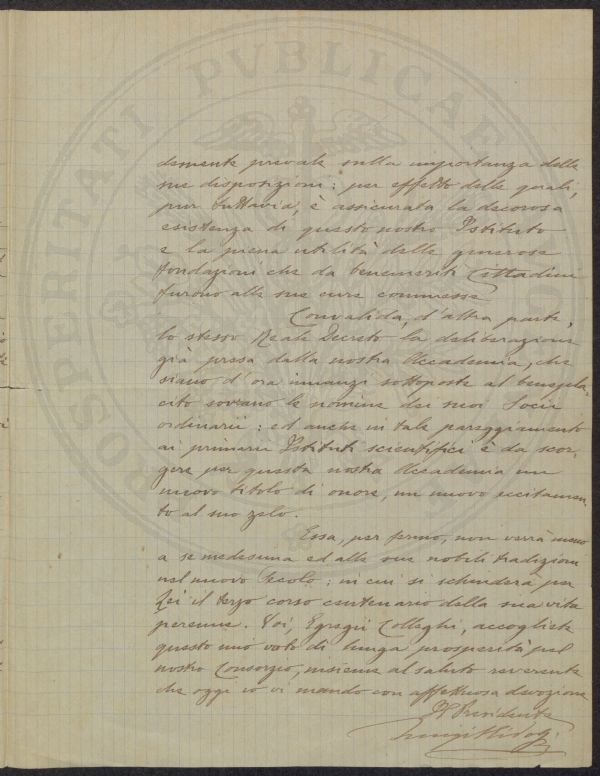 PROSPERITATI PUBLICAE
demente prevale sulla importanza delle
sue disposizioni: per effetto delle quali,
pur tuttavia, è assicurata la decorosa
esistenza di questo nostro Istituto
e la piena utilità delle generose
fondazioni che da benemeriti Cittadini
furono alle sue cure commesse
Convalida, d'altra parte,
lo stesso Reale Decreto la deliberazione
già presa dalla nostra Accademia, che
siano d'ora innanzi sottoposte al benepla-
cito sovrano le nomine dei suoi Socii
ordinarii: ed anche in tale pareggiamento
ai primarii Istituti scientifici è da scor-
gere per questa nostra Accademia un
nuovo titolo di onore, un nuovo eccitamen-
to al suo zelo.
Essa, per fermo, non verrà meno
a se medesima ed alle sue nobili tradizioni
nel nuovo Secolo: in cui si schiuderà per
Lei il terzo corso centenario della sua vita
perenne. Voi, Egregii Colleghi, accogliete
questo mio voto di lunga prosperità pel
nostro Consorzio, insieme al saluto reverente
che oggi io vi mando con affettuosa devozione
Il Presidente
Luigi